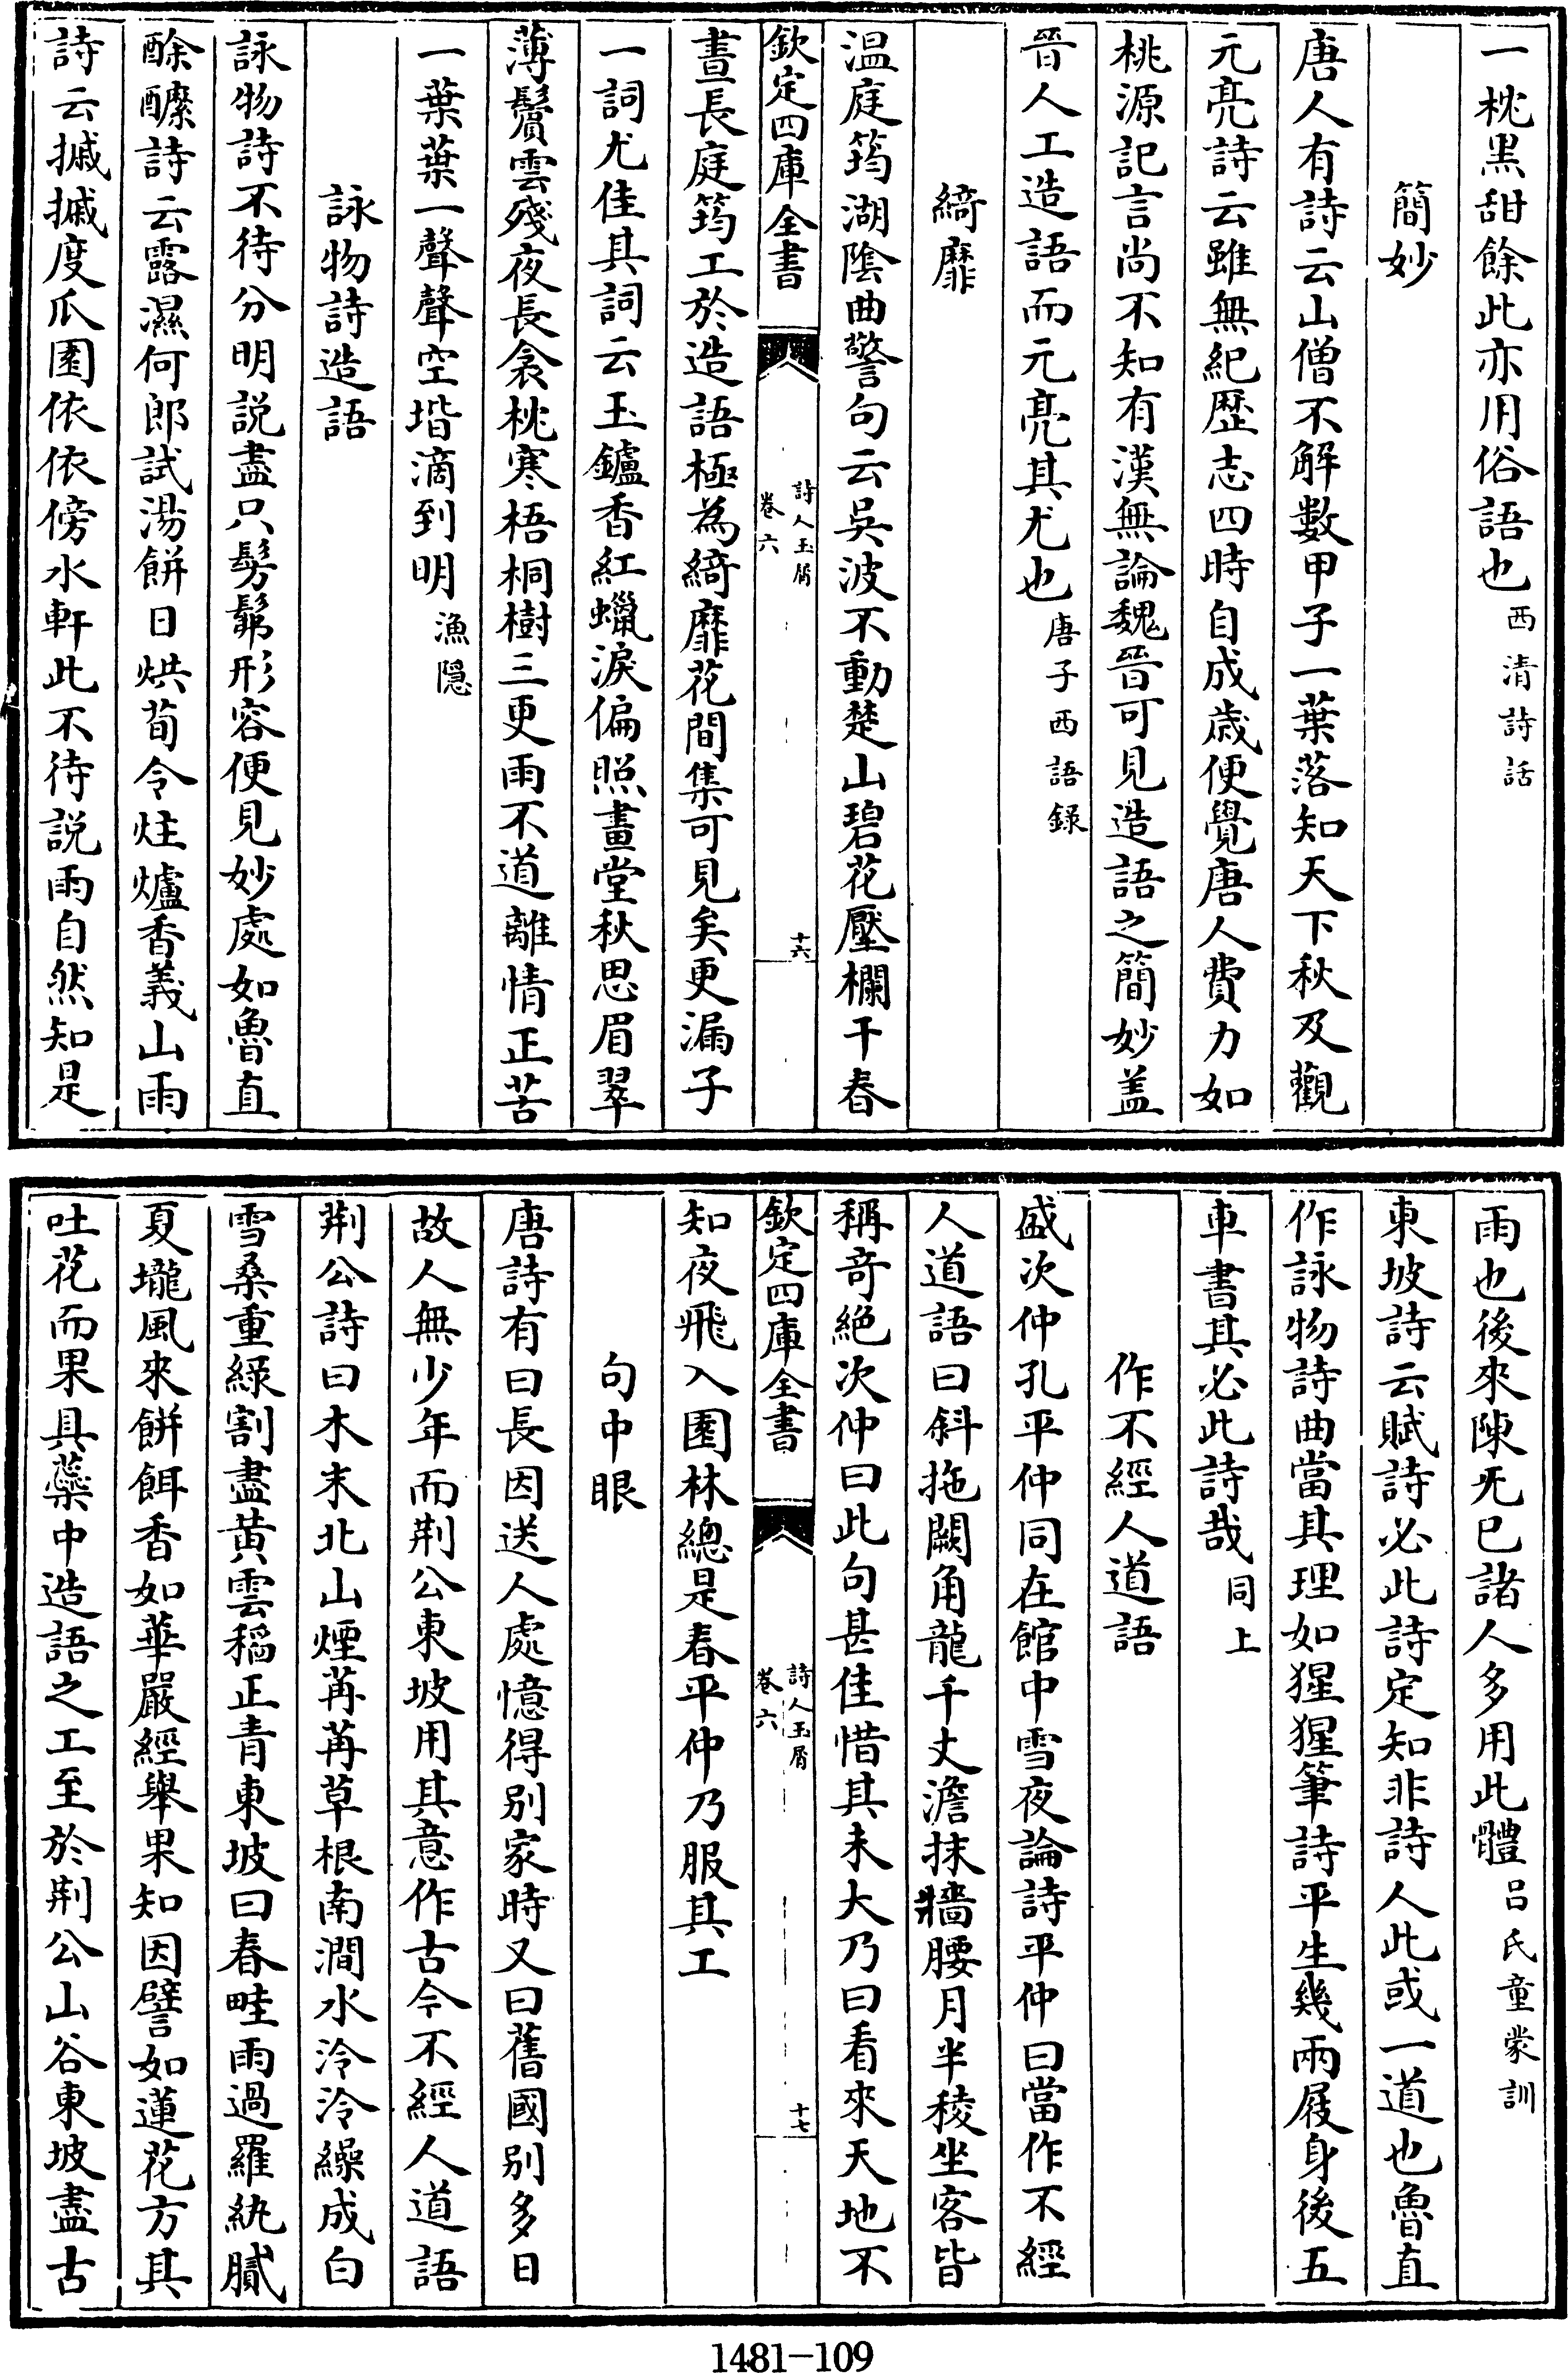 一枕黑甜餘此亦用俗語也西清詩話
簡妙
唐人有詩云山僧不解數甲子一葉落知天下秋及觀
元亮詩云雖無紀歴志四時自成歳便覺唐人費力如
桃源記言尚不知有漢無論魏晉可見造語之簡妙盖
晉人工造語而元亮其尤也唐子西語錄
綺靡
温庭筠湖隂曲警句云吳波不動楚山碧花壓欄干春
欽定四庫全書
詩人玉屑
卷六
十六
晝長庭筠工於造語極為綺靡花間集可見矣更漏子
一詞尤佳其詞云玉鑪香紅蠟淚偏照畫堂秋思眉翠
薄鬢雲殘夜長衾枕寒梧桐樹三更雨不道離情正苦
一葉葉一聲聲空堦滴到明漁隱
詠物詩造語
詠物詩不待分明説盡只髣髴形容便見妙處如魯直
酴醿詩云露濕何郎試湯餅日烘荀令炷爐香義山雨
詩云摵摵度瓜園依依傍水軒此不待説雨自然知是
雨也後來陳无已諸人多用此體吕氏童蒙訓
東坡詩云賦詩必此詩定知非詩人此或一道也魯直
作詠物詩曲當其理如猩猩筆詩平生幾兩屐身後五
車書其必此詩哉同上
作不經人道語
盛次仲孔平仲同在館中雪夜論詩平仲曰當作不經
人道語曰斜拖闕角龍千丈澹抹牆腰月半稜坐客皆
稱竒絶次仲曰此句甚佳惜其未大乃曰看來天地不
欽定四庫全書
詩人玉屑
卷六
十七
知夜飛入園林總是春平仲乃服其工
句中眼
唐詩有曰長因送人處憶得别家時又曰舊國别多日
故人無少年而荆公東坡用其意作古今不經人道語
荆公詩曰木末北山煙苒苒草根南澗水泠泠繰成白
雪桑重緑割盡黄雲稻正青東坡曰春畦雨過羅紈膩
夏壠風來餅餌香如華嚴經舉果知因譬如蓮花方其
吐花而果具蘂中造語之工至於荆公山谷東坡盡古
1481-109